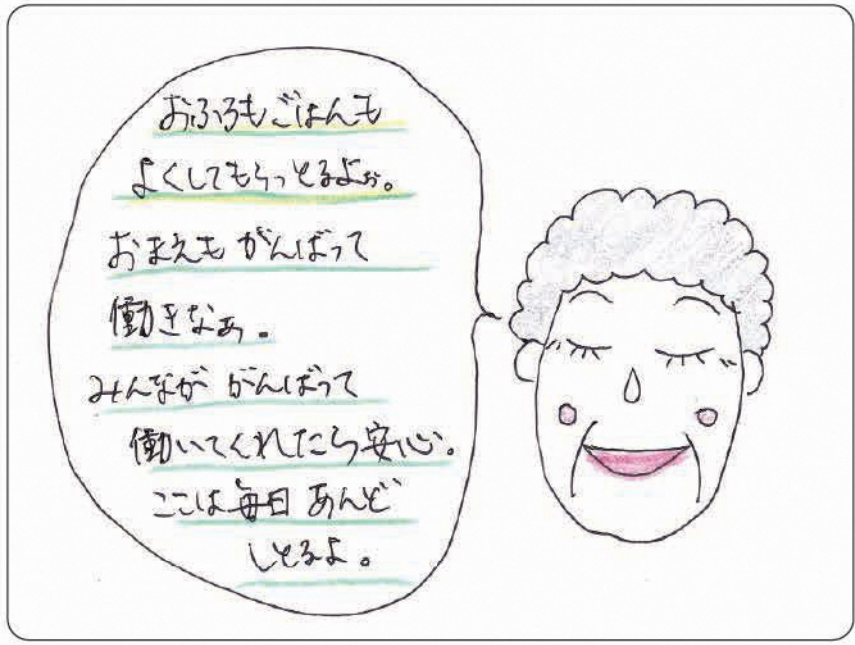 おふろもごはんも
よくしてもらっとるよぉ。
おまえも がんばって
働きなぁ。
みんなが がんばって
働いてくれたら安心。
ここは毎日 あんど
しとるよ。